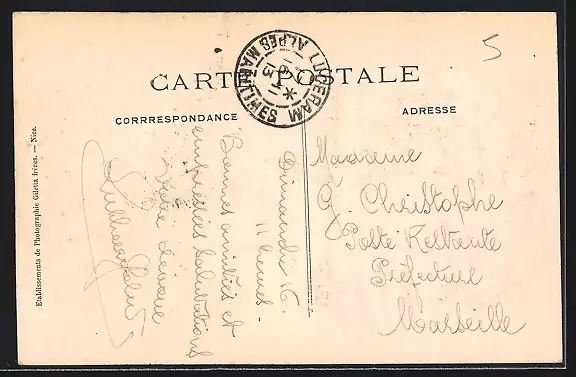 CARTE POSTALE
CORRRESPONDANCE
ADRESSE
LUCERAM
ALPES MARITIMES
13
5
Dimanche 16.
11 heures.
Bonnes amitiés et
empressées salutations
Votre dévoué
Madame
J. Christophe
Poste Restante
Préfecture
Marseille
Etablissements de Photographie Giletta frères. — Nice.